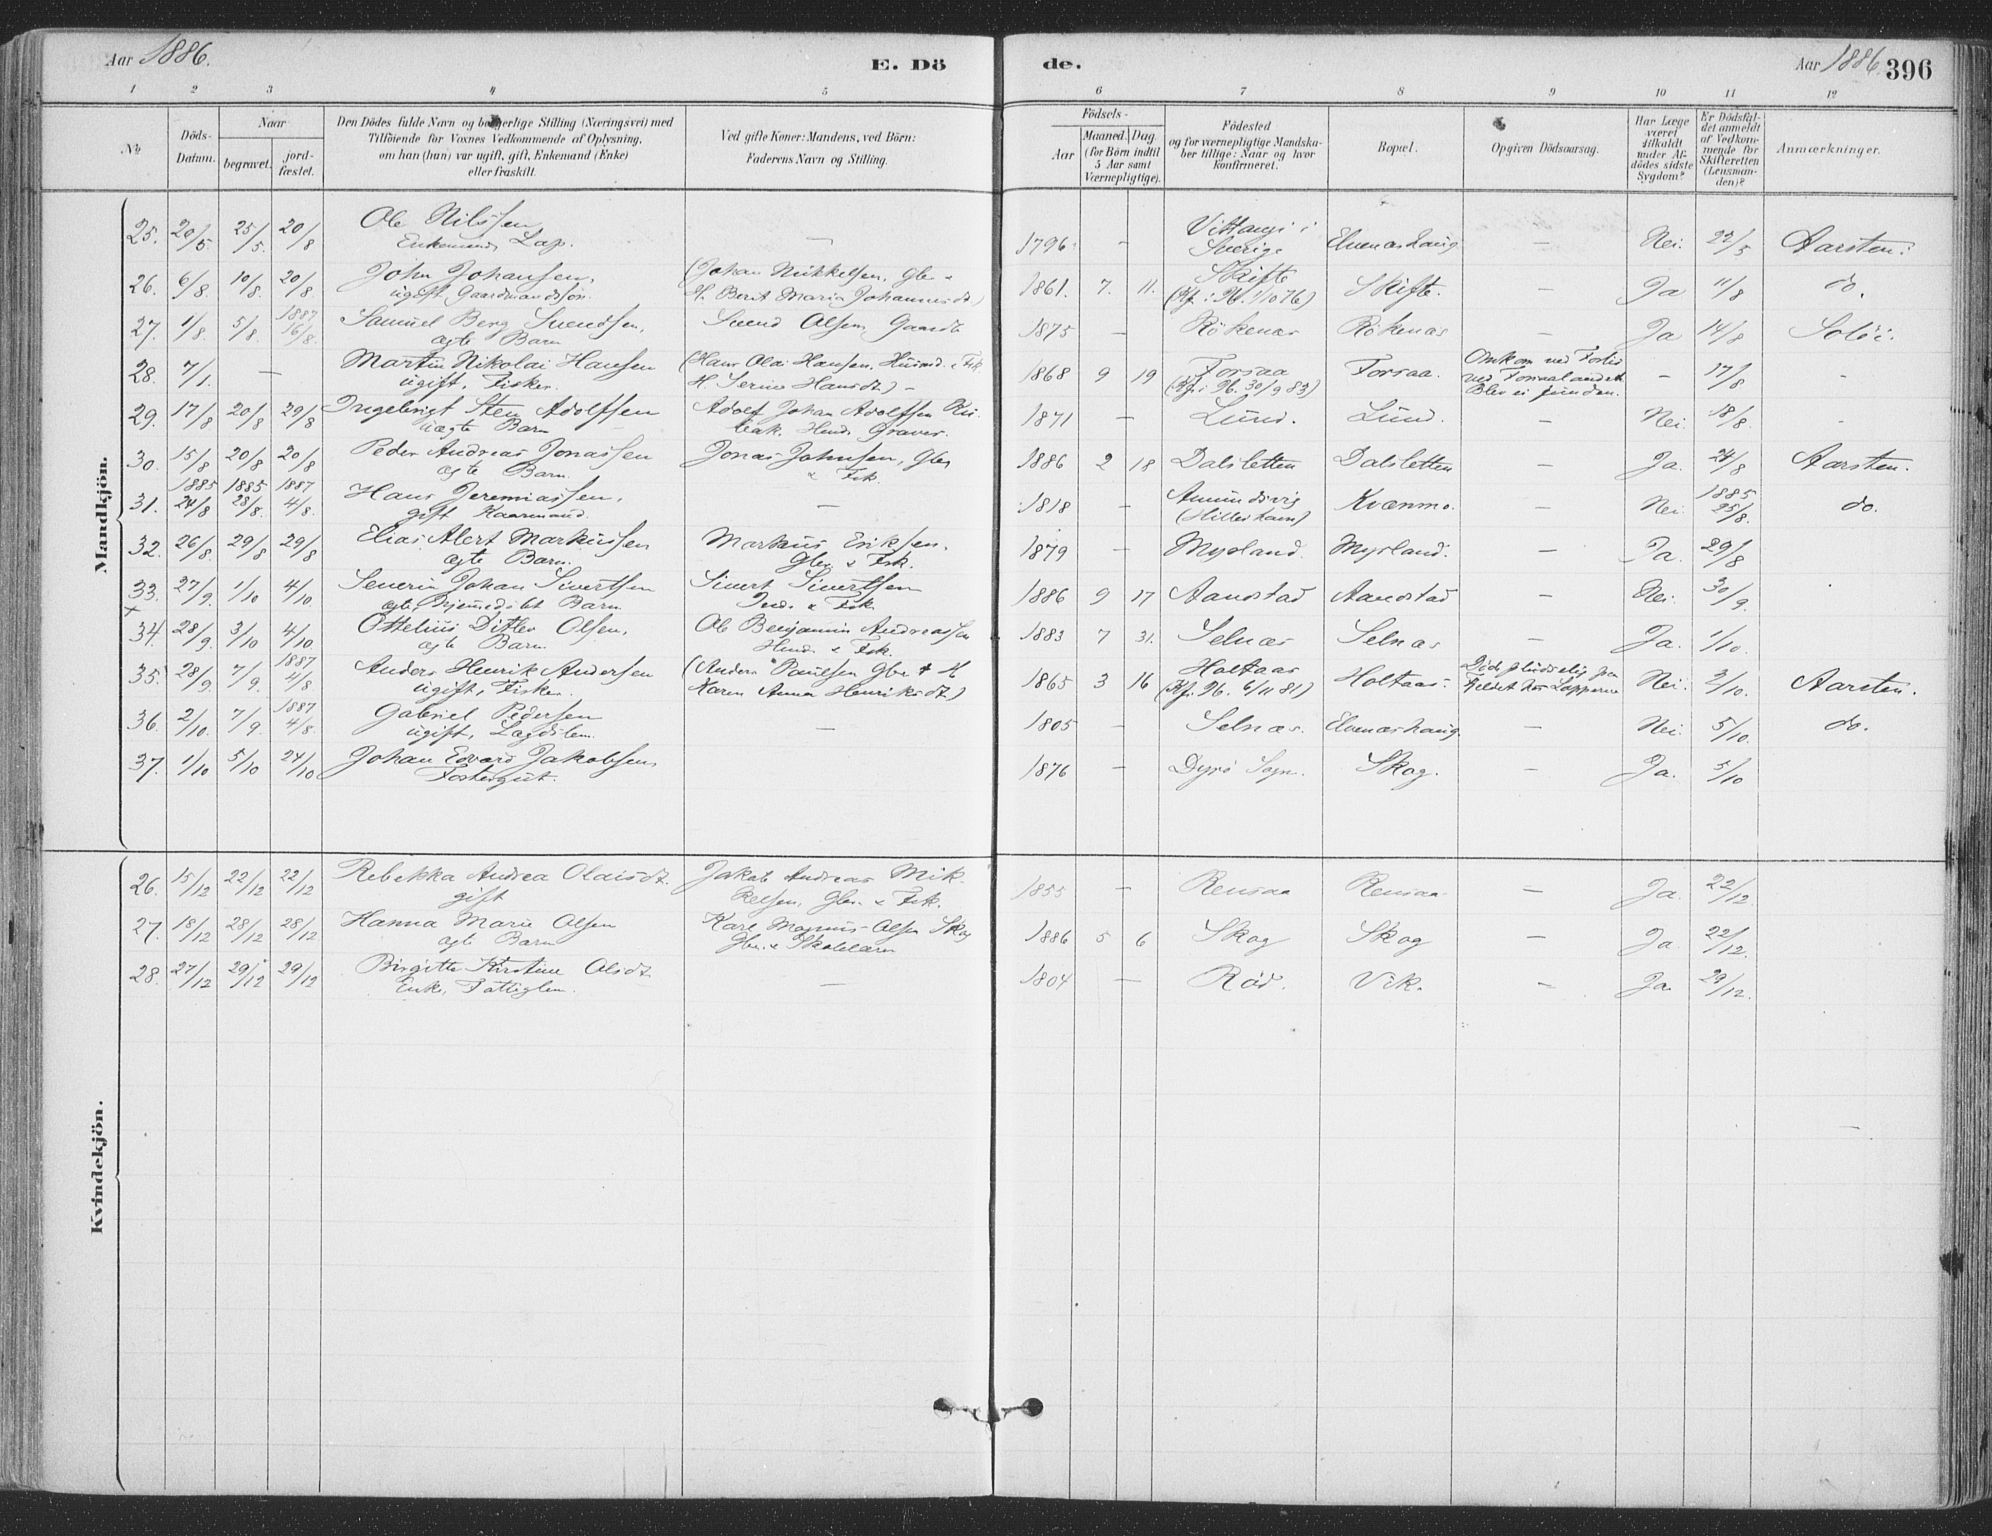 Aar 1886.
E. Dö
de.
Aar 1886. 396
1 2 3 4 5 6 7 8 9 10 11 12
№
Döds-Datum.
Naar
begravet.
jord-fæstet.
Den Dödes fulde Navn og borgerlige Stilling (Næringsvei) med
Tilföiende for Voxnes Vedkommende af Oplysning,
om han (hun) var ugift, gift, Enkemand (Enke)
eller fraskilt.
Ved gifte Koner: Mandens, ved Börn:
Faderens Navn og Stilling.
Födsels-
Aar
Maaned. Dag.
(for Börn indtil
5 Aar samt
Værnepligtige).
Födested
og for værnepligtige Mandska-
ber tillige: Naar og hvor
konfirmeret.
Bopæl.
Opgiven Dödsaarsag.
Har Læge
været
tilkaldt
under Af-
dödes sidste
Sygdom?
Er Dödsfal-
det anmeldt
af Vedkom-
mende for
Skifteretten
(Lensman-
den)?
Anmærkninger.
Mandkjön.
25. 20/5. 25/5. 20/8 Ole Nilssen — 1796. — Vittangi i — Nei. 22/5 Aarsten.
Enkemand, Lap. Sverige Elvenæshaug
26. 6/8. 10/8. 20/8 John Johansen, (Johan Mikkelsen, Gbr. & 1861. 7. 11. Skifte Skifte. — Ja 11/8 do.
ugift, Gaardmandssøn. H. Berit Maria Johannesdt) (Kf. i Ib. 1/10 76)
27. 1/8. 5/8. 1887 16/8. Samuel Berg Svendsen, Svend Olsen, Gaardb 1875 — Rökenæs Rökenæs — Ja 14/8 Solöi.
ægte Barn
28. 7/1. — Martin Nikolai Hansen (Hans Olai Hansen, Husmd. & Fisk 1868 9 19 Forsaa Forsaa. Omkom ved Forlis — 17/8 -
ugift, Fisker. H. Serine Hansdt) (Kf. i Ib. 30/9 83) Blev ei funden.
29. 17/8 20/8 29/8 Ingebrigt Sten Adolfsen Adolf Johan Adolfsen 1871 — Lund. Lund. — Nei. 18/8. -
uægte Barn
30. 15/8 20/8 20/8 Peder Andreas Jonassen Jonas Johnsen, Gbr 1886 2 18 Dalsletten Dalsletten — Ja. 24/8 Aarsten.
ægte Barn. & Fisk.
31. 1885 24/8 1885 28/8. 1887 4/8. Hans Jeremiassen, — 1818 — Amundsvig Kvænmo. Nei. 1885 25/8. do.
gift Kaarmand.
32. 26/8 29/8 29/8 Elias Alert Markussen Markus Eriksen, 1879 — Myrland. Myrland. — Ja. 29/8
ægte Barn. Gbr. & Fisk.
33. 27/9. 1/10 4/10 Severin Johan Sivertsen Sivert Sivertsen 1886 9 17 Aanstad Aanstad — Nei. 30/9.
ægte, Hjemmedöbt Barn Inds. & Fisk
34. 28/9. 3/10 4/10. Ottelius Ditlev Olsen, Ole Benjamin Andreassen 1883 7 31. Selnæs Selnæs — Ja. 1/10.
ægte Barn. Husm. & Fisk.
35. 28/9. 7/9. 1887 4/8 Anders Henrik Andersen (Anders Paulsen Gbr & H 1865 3 16 Holtaas Holtaas. Nei. 2/10. Aarsten.
ugift, Fisker. Karen Anna Henriksdt) (Kf. i Ib. 6/11 81) Fjeldet hos Lapperne
36. 2/10. 7/9. 1887 4/8 Gabriel Pedersen — 1805 — Selnæs. Elvenæshaug. — Nei. 5/10. do.
ugift, Lægdslem.
37. 1/10 5/10 24/10 Johan Edvard Jakobsen, 1876 — Dyrö Sogn. Skog. — Ja. 5/10
Fostergut.
Kvindekjön.
26. 15/12 22/12 22/12 Rebekka Andrea Olaisdt. Jakob Andreas Mik- 1855 — Rensaa Rensaa — Ja. 22/12.
gift kelsen, Gbr. & Fisk.
27. 18/12 28/12 28/12 Hanna Marie Olsen Karl Magnus Olsen Skog 1886 5 6 Skog Skog — Ja 22/12.
ægte Barn Gbr. & Skolelærer
28. 27/12 29/12 29/12 Birgitte Kirstine Olsdt. — 1804 — Röd. Vik. — Ja 29/12.
Enke, Fattiglem.